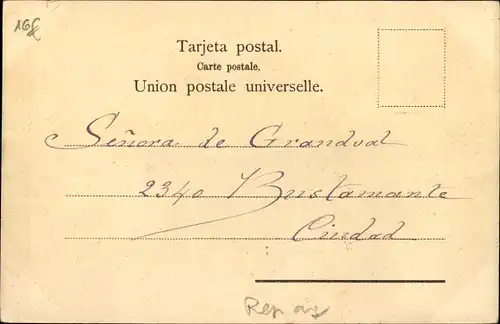 Tarjeta postal.
Carte postale.
Union postale universelle.
Señora de Grandval
2340 Bustamante
Ciudad